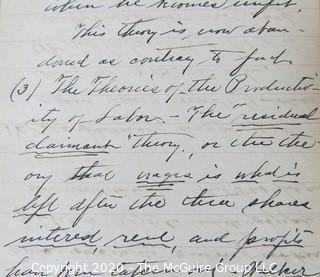 when he becomes unfit.
This theory is now aban-
doned as contrary to fact.
(3) The Theories of the Productiv-
ity of Labor. - The "residual
claimant" theory, or the the-
ory that wages is what is
left after the three shares
interest, rent, and profits
Copyright 2020 - The McGuire Group LLC